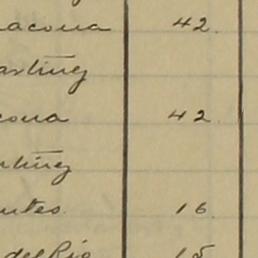 acona 42.
arting
cona 42.
rting
untes. 16
del Rio 15